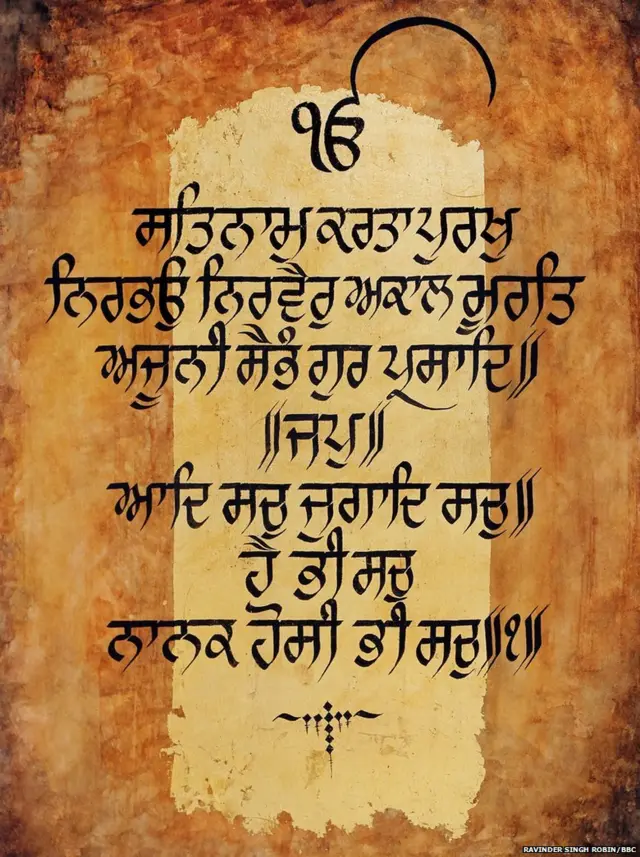 ੴ
ਸਤਿਨਾਮੁ ਕਰਤਾ ਪੁਰਖੁ
ਨਿਰਭਉ ਨਿਰਵੈਰੁ ਅਕਾਲ ਮੂਰਤਿ
ਅਜੂਨੀ ਸੈਭੰ ਗੁਰ ਪ੍ਰਸਾਦਿ॥
॥ਜਪੁ॥
ਆਦਿ ਸਚੁ ਜੁਗਾਦਿ ਸਚੁ॥
ਹੈ ਭੀ ਸਚੁ
ਨਾਨਕ ਹੋਸੀ ਭੀ ਸਚੁ॥੧॥
RAVINDER SINGH ROBIN/BBC